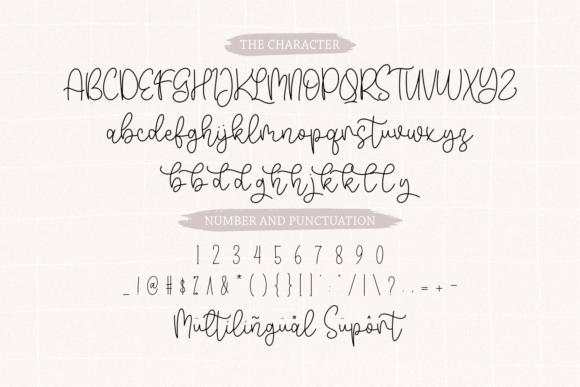 THE CHARACTER
ABCDEFGHIJKLMNOPQRSTUVWXYZ
abcdefghijklmnopqrstuvwxyz
bbddghhjkklly
NUMBER AND PUNCTUATION
1 2 3 4 5 6 7 8 9 0
_ ! @ # $ Z Λ & * ( ) { } [ ] ' : " / | \ ? . , = + -
Mültiliñgüål Süpôrt